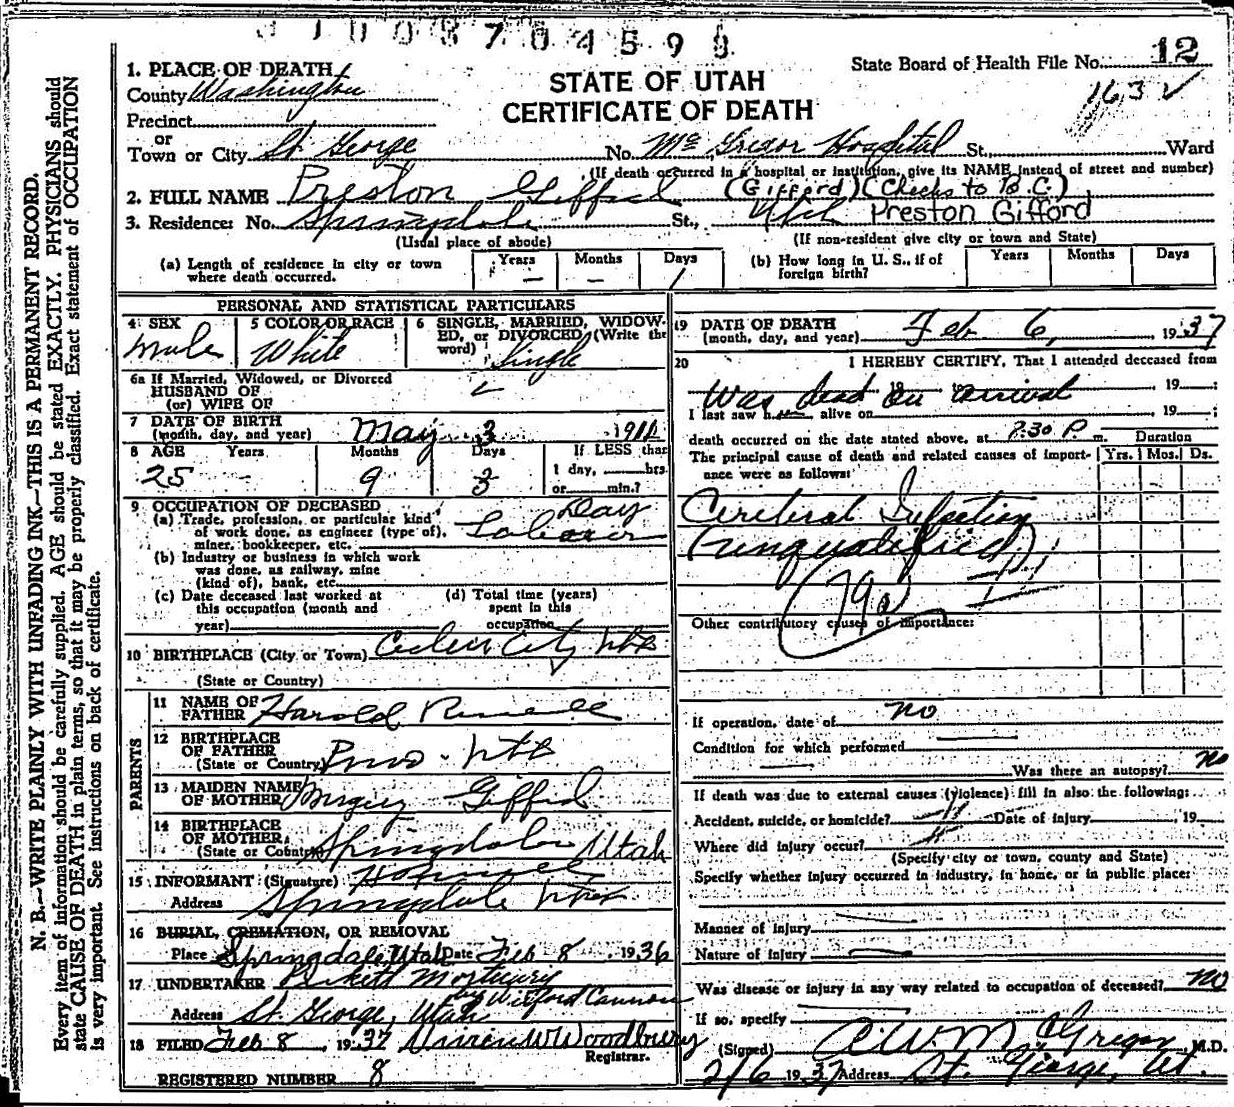 12
State Board of Health File No.
163 ✓
STATE OF UTAH
CERTIFICATE OF DEATH
1. PLACE OF DEATH
County Washington
Precinct
or
Town or City St. George No. Mc Gregor Hospital St., Ward
(If death occurred in a hospital or institution, give its NAME instead of street and number)
2. FULL NAME Preston Gifford (Gifford) (Checks to B.C.)
3. Residence: No. Springdale St., Utah Preston Gifford
(Usual place of abode) (If non-resident give city or town and State)
(a) Length of residence in city or town where death occurred. Years – Months – Days 1
(b) How long in U. S., if of foreign birth? Years Months Days
N. B.—WRITE PLAINLY WITH UNFADING INK—THIS IS A PERMANENT RECORD.
Every item of information should be carefully supplied. AGE should be stated EXACTLY. PHYSICIANS should
state CAUSE OF DEATH in plain terms, so that it may be properly classified. Exact statement of OCCUPATION
is very important. See instructions on back of certificate.
PERSONAL AND STATISTICAL PARTICULARS
4 SEX Male
5 COLOR OR RACE White
6 SINGLE, MARRIED, WIDOWED, or DIVORCED (Write the word) Single
6a If Married, Widowed, or Divorced
HUSBAND OF
(or) WIFE OF
7 DATE OF BIRTH
(month, day, and year) May 3 1911
8 AGE Years Months Days If LESS than
25 9 3 1 day, hrs.
or min.?
9 OCCUPATION OF DECEASED
(a) Trade, profession, or particular kind of work done, as engineer (type of), miner, bookkeeper, etc. Day Laborer
(b) Industry or business in which work was done, as railway, mine (kind of), bank, etc.
(c) Date deceased last worked at this occupation (month and year)
(d) Total time (years) spent in this occupation
10 BIRTHPLACE (City or Town) Cedar City Utah
(State or Country)
PARENTS
11 NAME OF FATHER Harold Russell
12 BIRTHPLACE OF FATHER (State or Country) Provo - Utah
13 MAIDEN NAME OF MOTHER Gifford
14 BIRTHPLACE OF MOTHER (State or Country) Springdale Utah
15 INFORMANT (Signature)
Address Springdale Utah
16 BURIAL, CREMATION, OR REMOVAL
Place Springdale, Utah Date Feb 8 1936
17 UNDERTAKER Pickett Mortuary
by Wilford Cannon
Address St. George, Utah
18 FILED Feb 8, 1937 Vivien W Woodbury
Registrar.
REGISTERED NUMBER 8
19 DATE OF DEATH
(month, day, and year) Feb 6, 1937
20 I HEREBY CERTIFY, That I attended deceased from
Was dead on arrival 19 ;
I last saw h alive on 19 ;
death occurred on the date stated above, at 7:30 P. m. Duration
The principal cause of death and related causes of importance were as follows: Yrs. Mos. Ds.
Cerebral Infection
(unqualified)
79a
Other contributory causes of importance:
If operation, date of no
Condition for which performed
Was there an autopsy? no
If death was due to external causes (violence) fill in also the following:
Accident, suicide, or homicide? Date of injury , 19
Where did injury occur?
(Specify city or town, county and State)
Specify whether injury occurred in industry, in home, or in public place:
Manner of injury
Nature of injury
Was disease or injury in any way related to occupation of deceased? no
If so, specify
(Signed) A.W. McGregor, M.D.
2/6 1937 Address St. George, Ut.